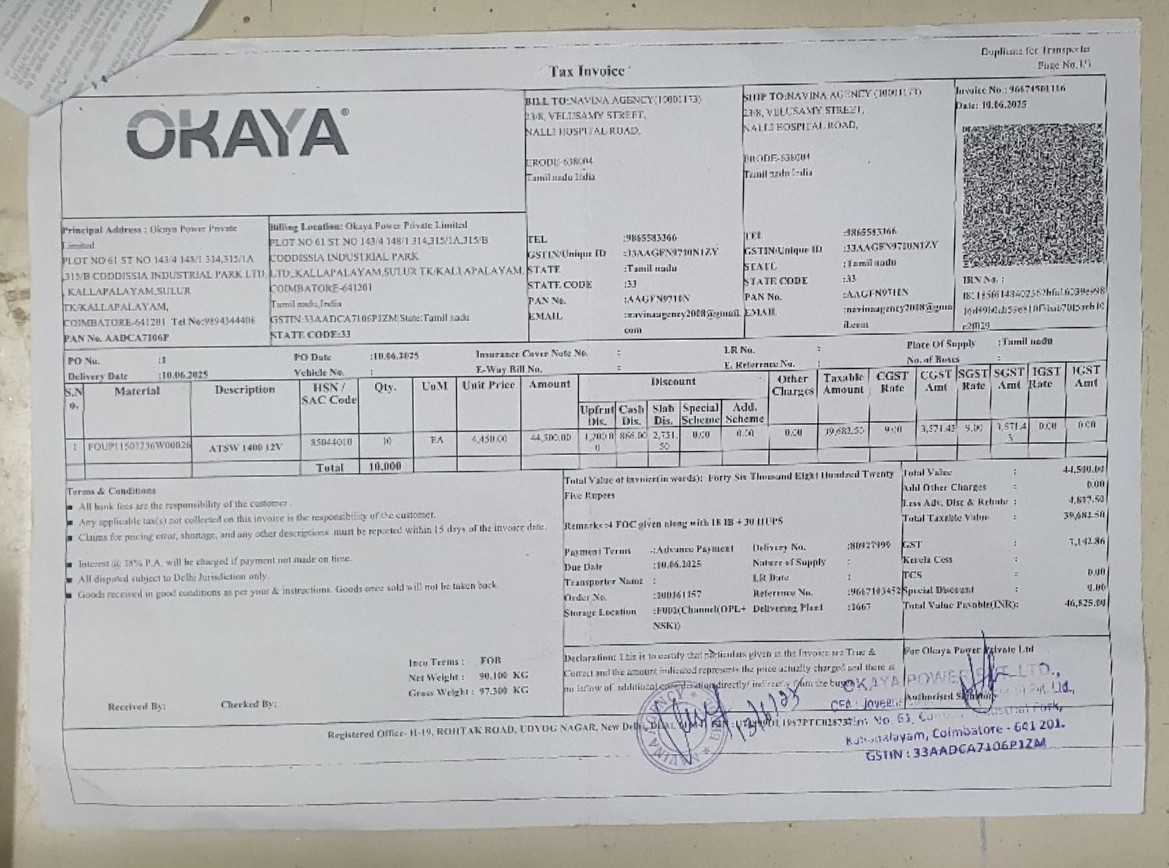 Duplicate for Transporter
Page No.1/1
Tax Invoice
OKAYA®
BILL TO:NAVINA AGENCY(10001173)
23/8, VELUSAMY STREET,
NALLI HOSPITAL ROAD,
ERODE-638004
Tamil nadu India
TEL :9865583366
GSTIN/Unique ID :33AAGFN9710N1ZY
STATE :Tamil nadu
STATE CODE :33
PAN No. :AAGFN9710N
EMAIL :navinaagency2008@gmail.
com
SHIP TO:NAVINA AGENCY (10001173)
23/8, VELUSAMY STREET,
NALLI HOSPITAL ROAD,
ERODE-638004
Tamil nadu India
TEL :9865583366
GSTIN/Unique ID :33AAGFN9710N1ZY
STATE :Tamil nadu
STATE CODE :33
PAN No. :AAGFN9710N
EMAIL :navinaagency2008@gma
il.com
Invoice No.: 96674501116
Date: 10.06.2025
IRN No. :
Principal Address : Okaya Power Private
Limited
PLOT NO 61 ST NO 143/4 148/1 314,315/1A
,315/B CODDISSIA INDUSTRIAL PARK LTD.
, KALLAPALAYAM,SULUR
TK/KALLAPALAYAM,
COIMBATORE-641201 Tel No:9894344406
PAN No. AADCA7106P
Billing Location: Okaya Power Private Limited
PLOT NO 61 ST NO 143/4 148/1 314,315/1A,315/B
CODDISSIA INDUSTRIAL PARK
LTD.,KALLAPALAYAM,SULUR TK/KALLAPALAYAM,
COIMBATORE-641201
Tamil nadu,India
GSTIN:33AADCA7106P1ZM State:Tamil nadu
STATE CODE:33
PO No. :1 PO Date :10.06.2025 Insurance Cover Note No. : LR No. : Place Of Supply :Tamil nadu
Delivery Date :10.06.2025 Vehicle No. : E-Way Bill No. : E. Reference No. : No. of Boxes :
S.N
o. Material Description HSN /
SAC Code Qty. UoM Unit Price Amount Discount Other
Charges Taxable
Amount CGST
Rate CGST
Amt SGST
Rate SGST
Amt IGST
Rate IGST
Amt
Upfrnt
Dis. Cash
Dis. Slab
Dis. Special
Scheme Add.
Scheme
1 FOUP11507236W00026 ATSW 1400 12V 85044010 10 EA 4,450.00 44,500.00 1,200.0
0 866.00 2,751.
50 0.00 0.00 0.00 39,682.50 9.00 3,571.43 9.00 3,571.4
3 0.00 0.00
Total 10.000
Terms & Conditions
All bank fees are the responsibility of the customer .
Any applicable tax(s) not collected on this invoice is the responsibility of the customer.
Claims for pricing error, shortage, and any other descriptions must be reported within 15 days of the invoice date.
Interest @ 18% P.A. will be charged if payment not made on time.
All disputed subject to Delhi Jurisdiction only.
Goods received in good conditions as per your & instructions. Goods once sold will not be taken back.
Total Value of invoice(in words): Forty Six Thousand Eight Hundred Twenty
Five Rupees
Remarks:4 FOC given along with 18 IB + 30 HUPS
Payment Terms :Advance Payment Delivery No. :80927999
Due Date :10.06.2025 Nature of Supply :
Transporter Name : LR Date :
Order No. :300361157 Reference No. :9667103452
Storage Location :F003(Channel(OPL+ Delivering Plant :1667
NSK1)
Total Value : 44,500.00
Add Other Charges : 0.00
Less Adv. Disc & Rebate : 4,817.50
Total Taxable Value : 39,682.50
GST : 7,142.86
Kerela Cess :
TCS : 0.00
Special Discount : 0.00
Total Value Payable(INR): 46,825.00
Inco Terms : FOR
Net Weight : 90.100 KG
Gross Weight : 97.300 KG
Received By: Checked By:
Declaration: This is to certify that particulars given in the Invoice are True &
Correct and the amount indicated represents the price actually charged and there is
no inflow of additional consideration directly/ indirectly from the buyer
For Okaya Power Private Ltd
Authorised Signatory
OKAYA POWER PVT. LTD.,
Kallapalayam, Coimbatore - 641 201.
GSTIN : 33AADCA7106P1ZM
Registered Office- H-19, ROHTAK ROAD, UDYOG NAGAR, New Delhi,
NAVINA AGENCY